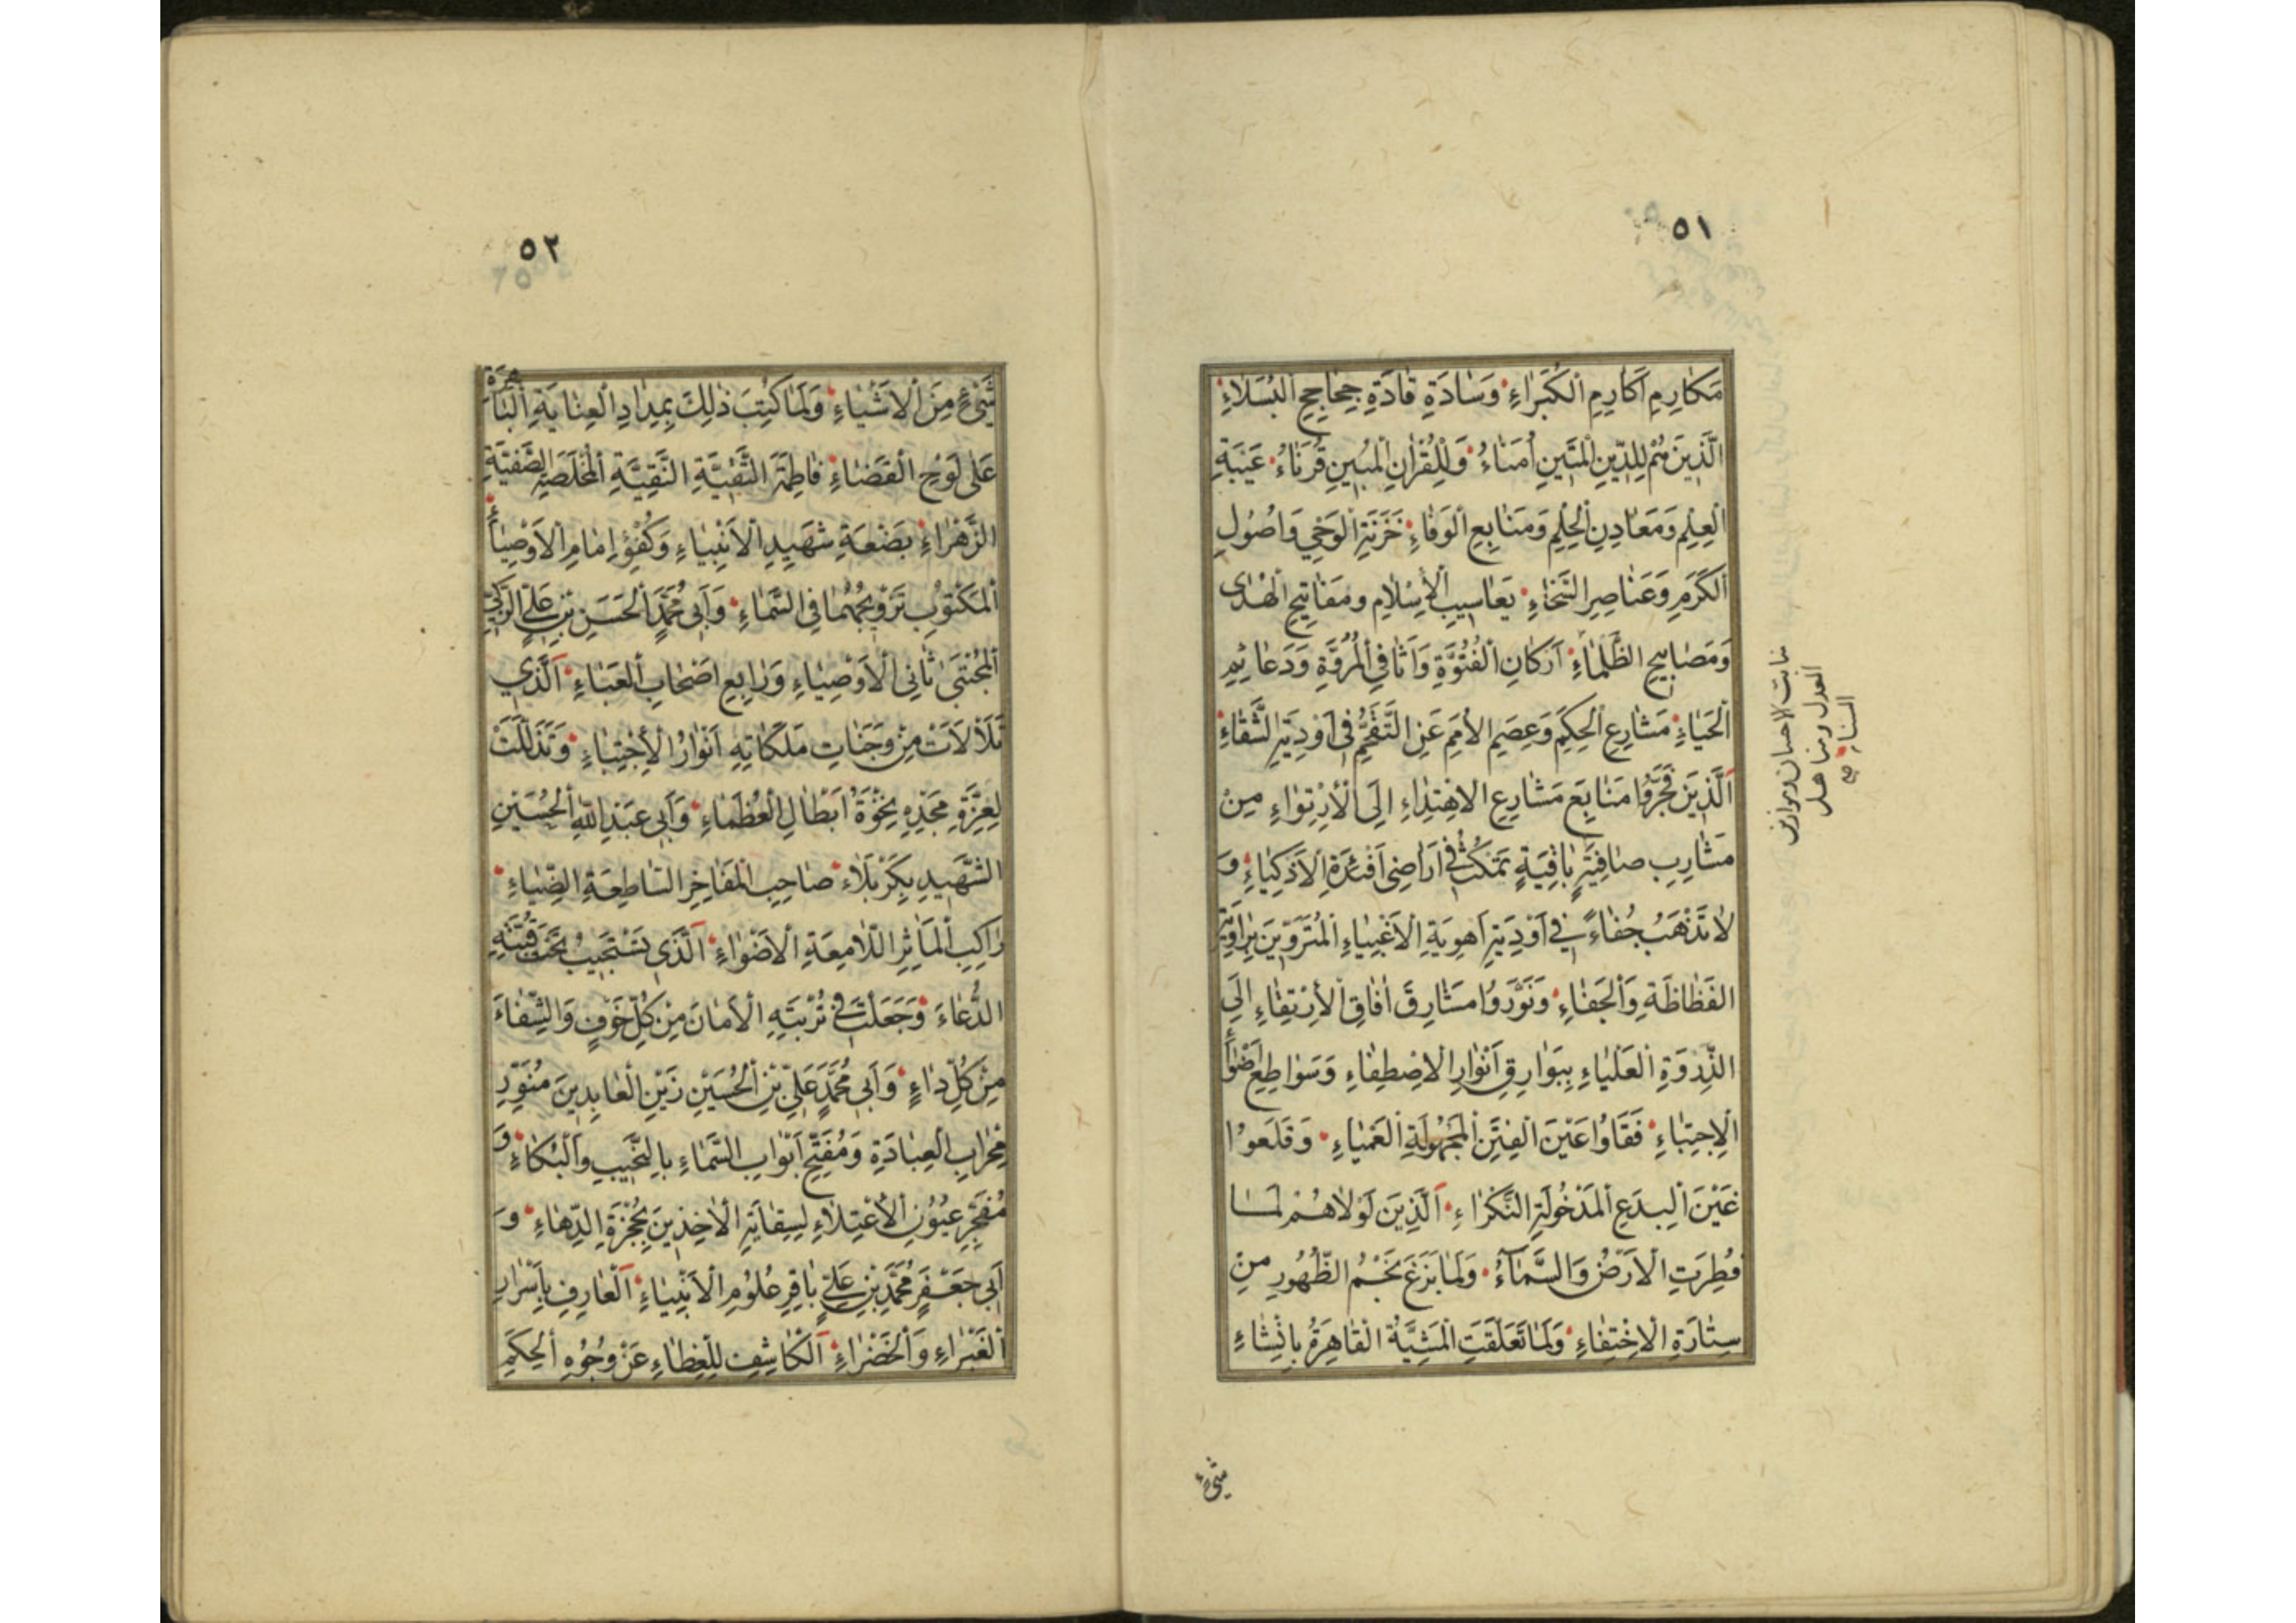 ٥١
مَكارِمِ اَكارِمِ الْكُبَراءِ وَسادَةِ قادَةِ جَحاجِحِ الْبُسَلاءِ
الَّذينَ هُمْ لِلدّينِ الْمَتينِ اُمَناءُ وَلِلْقُرْانِ الْمُبينِ قُرَناءُ عَيْبَةِ
الْعِلْمِ وَمَعادِنِ الْحِلْمِ وَمَنابِعِ الْوَفاءِ خَزَنَةِ الْوَحْيِ وَاُصُولِ
الْكَرَمِ وَعَناصِرِ السَّخاءِ يَعاسيبِ الْاِسْلامِ ومَفاتيحِ الْهُدى
وَمَصابيحِ الظَّلْماءِ اَرْكانِ الْفُتُوَّةِ وَاَثافِي الْمُرُوَّةِ وَدَعائِمِ
الْحَياءِ مَشارِعِ الْحِكَمِ وَعِصَمِ الْاُمَمِ عَنِ التَّقَحُّمِ فى اَوْدِيَةِ الشَّقاءِ
اَلَّذينَ فَجَّرُوا مَنابِعَ مَشارِعِ الاِهْتِداءِ اِلَى الْاِرْتِواءِ مِنْ
مَشارِبِ صافِيَةٍ باقِيَةٍ تَمْكُثُ فى اَراضى اَفْئِدَةِ الْاَذْكِياءِ وَ
لا تَذْهَبُ جُفاءً فى اَوْدِيَةِ اَهْوِيَةِ الْاَغْبِياءِ الْمُتَرَوّينَ بِراوِيَةِ
الفَظاظَةِ وَالْجَفاءِ وَنَوَّرَوُا مَشارِقَ افاقِ الْاِرْتِقاءِ اِلَى
الذِّرْوَةِ الْعَلْياءِ بِبَوارِقِ اَنْوارِ الاِصْطِفاءِ وَسَواطِعِ اَضْواءِ
الْاِجْتِباءِ فَفَقَاوُا عَيْنَ الْفِتَنِ الْمَجْهُولَةِ الْعَمْياءِ وَقَلَعوُا
عَيْنَ الْبِدَعِ الْمَدْخُولَةِ النَّكْراءِ اَلَّذينَ لَوْلاهُمْ لَما
فُطِرَتِ الْاَرْضُ وَالسَّماءُ وَلَما بَزَغَ نَجْمُ الظُّهُورِ مِنْ
سِتارَةِ الْاِخْتِفاءِ وَلَما تَعَلَّقَتِ الْمَشِيَّةُ الْقاهِرَةُ بِاِنْشاءِ
العدل ومناهل
السناء صح
شىء
٥٢
شَىْءٍ مِنَ الْاَشْياءِ وَلَما كُتِبَ ذلِكَ بِمِدادِ الْعِنايَةِ الْباهِرَةِ
عَلى لَوْحِ الْقَضاءِ فاطِمَةَ التَّقِيَّةِ النَّقِيَّةِ الْمُخْلَصَةِ الصَّفِيَّةِ
الزَّهْراءِ بَضْعَةِ شَهيدِ الْاَنْبِياءِ وَكُفْؤِ اِمامِ الْاَوْصِياءِ
الْمَكْتوُبِ تَزْويجُهُما فِى السَّماءِ وَاَبى مُحَمَّدٍ الْحَسَنِ بْنِ عَلِىٍّ الزَّكِىِّ
الْمُجْتَبى ثانِى الْاَوْصِياءِ وَرابِعِ اَصْحابِ الْعَباءِ اَلَّذى
تَلَأْلَأَتْ مِنْ وَجَناتِ مَلَكاتِهِ اَنْوارُ الْاِجْتِباءِ وَتَذَلَّلَتْ
لِعِزَّةِ مَجْدِهِ نَخْوَةُ اَبْطالِ الْعُظَماءِ وَاَبى عَبْدِ اللّٰهِ الْحُسَيْنِ
الشَّهيدِ بِكَرْبَلاءَ صاحِبِ الْمَفاخِرِ السّاطِعَةِ الضِّياءِ
راكِبِ الْمَاثِرِ اللّامِعَةِ الْاَضْواءِ اَلَّذى تَسْتَجيبُ تَحْتَ قُبَّتِهِ
الدُّعاءَ وَجَعَلْتَ فى تُرْبَتِهِ الْاَمانَ مِنْ كُلِّ خَوْفٍ وَالشِّفاءَ
مِنْ كُلِّ داءٍ وَاَبى مُحَمَّدٍ عَلِىِّ بْنِ الْحُسَيْنِ زَيْنِ الْعابِدينَ مُنَوِّرِ
مِحْرابِ الْعِبادَةِ وَمُفَتِّحِ اَبْوابِ السَّماءِ بِالنَّحيبِ وَالْبُكاءِ وَ
مُفَجِّرِ عُيُونِ الْاِعْتِلاءِ لِسِقايَةِ الْاخِذينَ بِحُجْزَةِ الدِّهاءِ وَ
اَبى جَعْفَرٍ مُحَمَّدِ بْنِ عَلِىٍّ باقِرِ عُلُومِ الْاَنْبِياءِ اَلْعارِفِ بِاَسْرارِ
الْغَبْراءِ وَالْخَضْراءِ اَلْكاشِفِ لِلْغِطاءِ عَنْ وُجُوهِ الْحِكَمِ